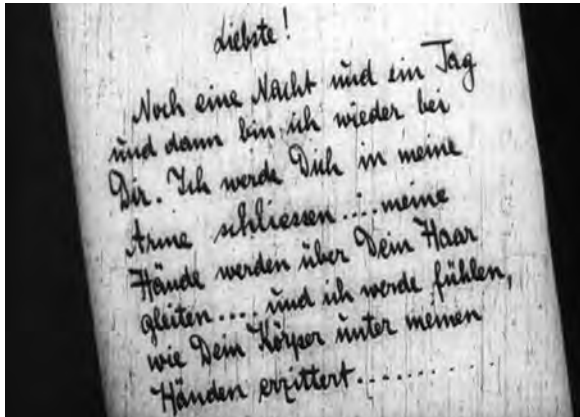 Liebste!
Noch eine Nacht und ein Tag
und dann bin ich wieder bei
Dir. Ich werde Dich in meine
Arme schliessen....meine
Hände werden über Dein Haar
gleiten....und ich werde fühlen,
wie Dein Körper unter meinen
Händen erzittert..........